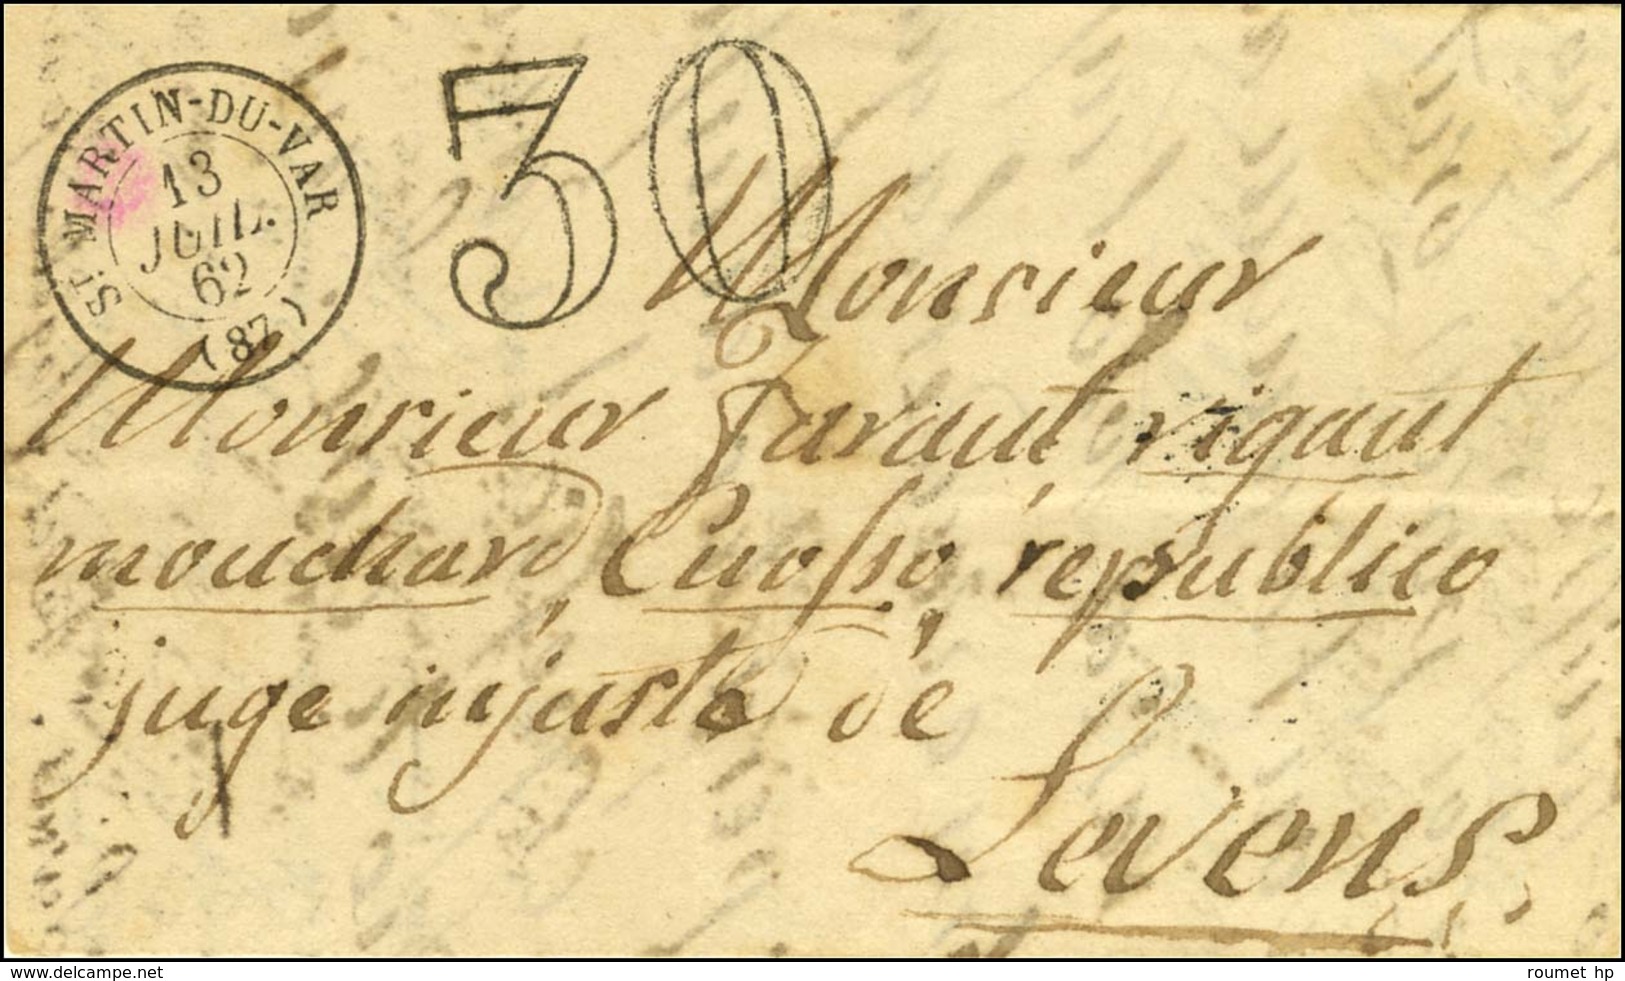 ST. MARTIN-DU-VAR
13
JUIL.
62
(87)
30
Monsieur
Monsieur Faraut rigaut
mouchard, Cuosso, républico
juge injuste dé
Levens
roumet hp
www.delcampe.net